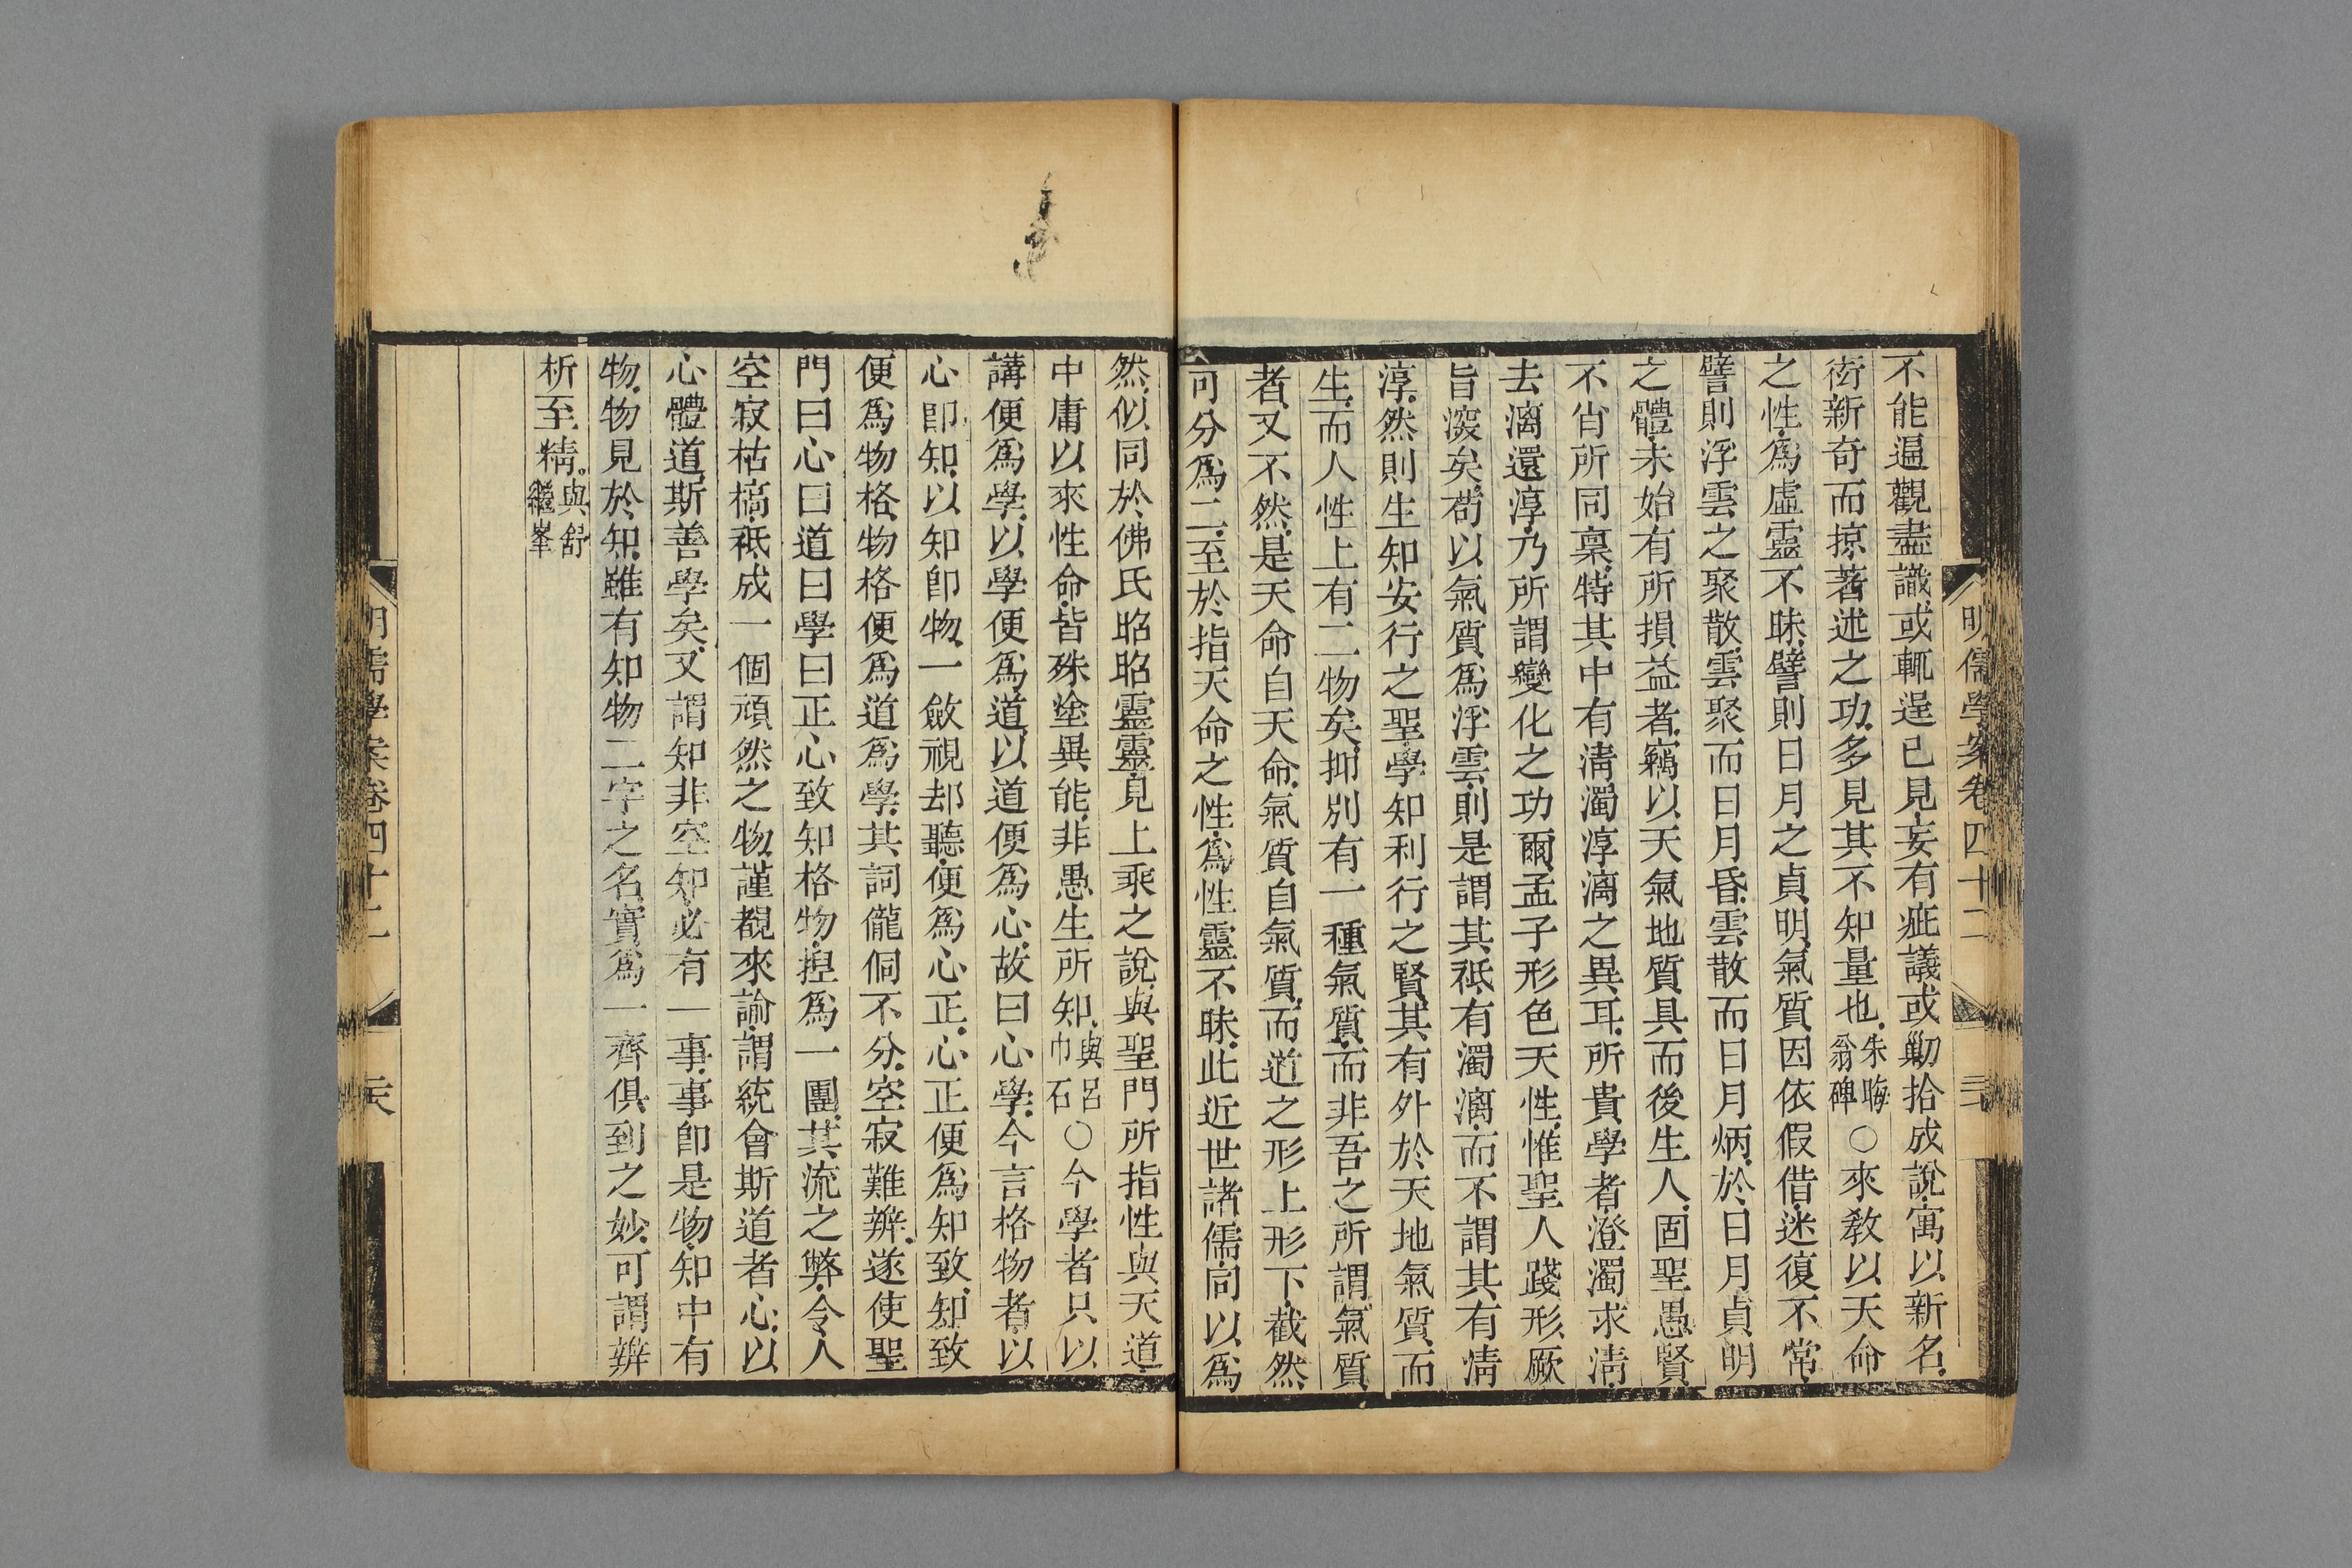 明儒學案卷四十二
不能逼觀盡識或輒逞己見妄有疵議或勦拾成說寓以新名
衒新奇而掠著述之功多見其不知量也朱晦翁碑○來敎以天命
之性爲虛靈不昧譬則日月之貞明氣質因依假借迷復不常
譬則浮雲之聚散雲聚而日月昏雲散而日月炳於日月貞明
之體未始有所損益者竊以天氣地質具而後生人固聖愚賢
不肖所同稟特其中有淸濁淳漓之異耳所貴學者澄濁求淸
去漓還淳乃所謂變化之功爾孟子形色天性惟聖人踐形厥
旨深矣苟以氣質爲浮雲則是謂其祗有濁漓而不謂其有淸
淳然則生知安行之聖學知利行之賢其有外於天地氣質而
生而人性上有二物矣抑別有一種氣質而非吾之所謂氣質
者又不然是天命自天命氣質自氣質而道之形上形下截然
可分爲二至於指天命之性爲性靈不昧此近世諸儒同以爲
然似同於佛氏昭昭靈靈見上乘之說與聖門所指性與天道
中庸以來性命皆殊塗異能非愚生所知與呂巾石○今學者只以
講便爲學以學便爲道以道便爲心故曰心學今言格物者以
心卽知以知卽物一斂視却聽便爲心正心正便爲知致知致
便爲物格物格便爲道爲學其詞儱侗不分空寂難辨遂使聖
門曰心曰道曰學曰正心致知格物揑爲一團其流之弊令人
空寂枯槁祗成一個頑然之物謹覩來諭謂統會斯道者心以
心體道斯善學矣又謂知非空知必有一事事卽是物知中有
物物見於知雖有知物二字之名實爲一齊俱到之妙可謂辨
析至精與舒繼峯
明儒學案卷四十二